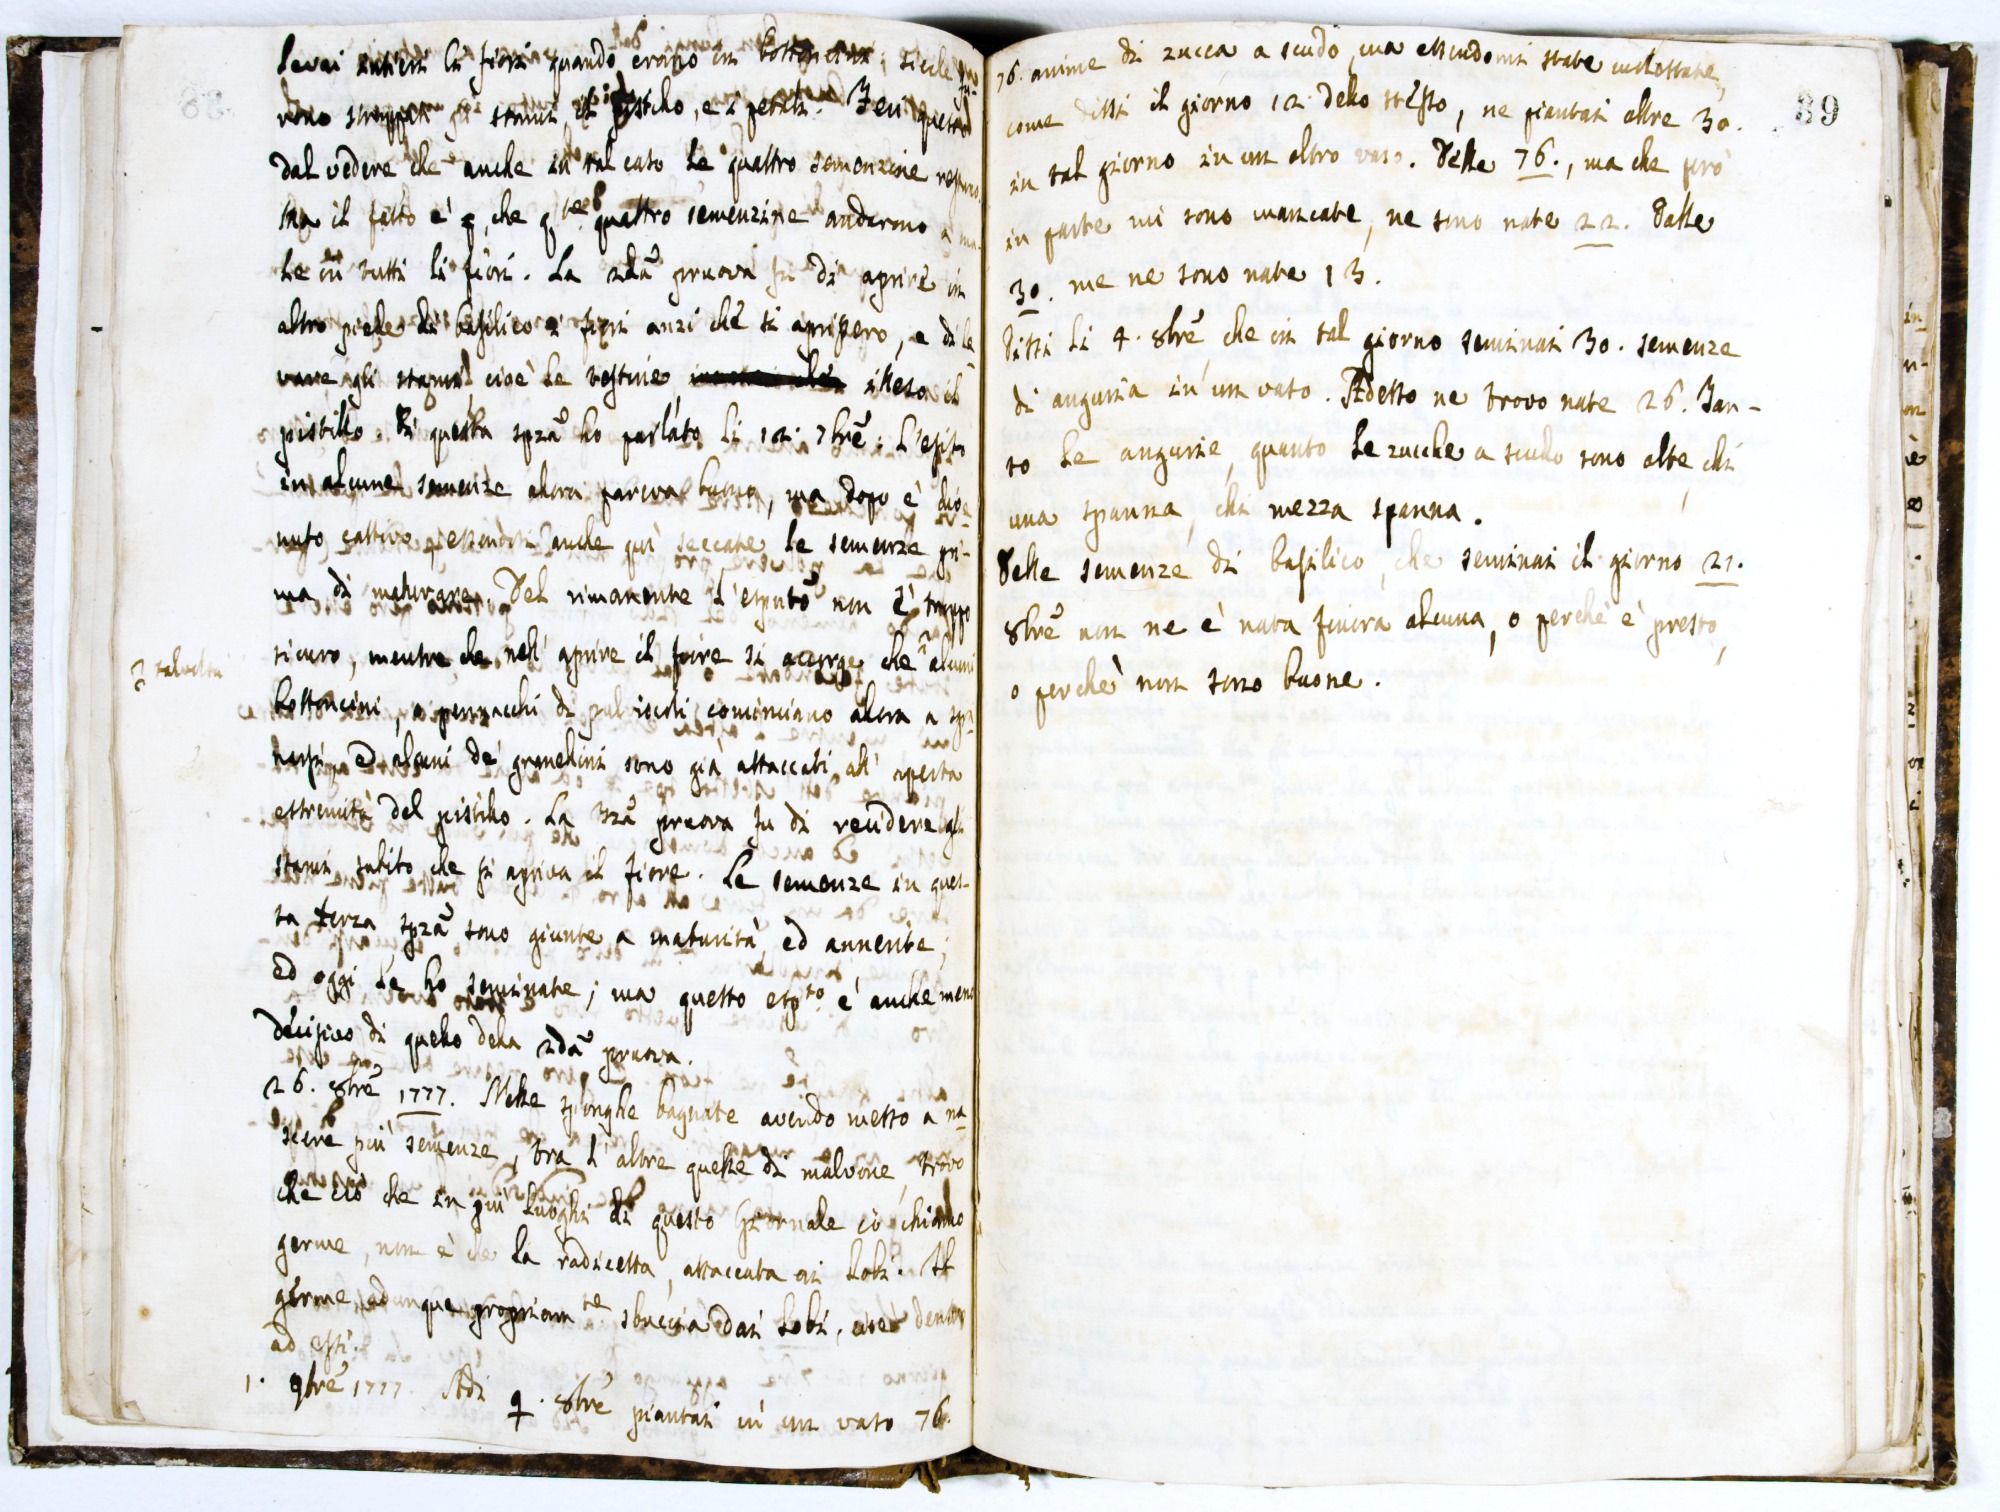 levai interi li fiori quando erano in bottoncini; sicchè fu-
rono strappati gli stami il pistillo, e i petali. Feci questo
dal vedere che anche in tal caso le quattro semenzine restano.
Ma il fatto è che q.te quattro semenzine andarono a ma-
le in tutti li fiori. La 2da pruova fu di aprire in
altro piede di basilico i fiori anzi che si aprissero, e di le-
vare gli stami, cioè le testine, illeso il
pistillo. Di questa spza ho parlato li 12. 7bre: L'esito
in alcune semenze alora pareva buono, ma dopo è dive-
nuto cattivo, essendosi anche qui seccate le semenze pri-
ma di maturare. Del rimanente l'espto non è troppo
sicuro, mentre che nell' aprire il fiore si accorge che alcuni
talvolta
bottoncini, o pennacchi di pulviscoli cominciano alora a
narsi, ed alcuni de' granellini sono già attaccati all' aperta
estremità del pistillo. La 3za pruova fu di recidere gli
stami subito che si apriva il fiore. Le semenze in ques-
ta terza spza sono giunte a maturità, ed annerite;
ed oggi le ho seminate; ma questo espto è anche meno
decisivo di quello della 2da pruova.
26. 8bre 1777. Nelle sponghe bagnate avendo messo a na-
scere più semenze, tra l'altre quelle di malvone, trovo
che ciò che in più luoghi di questo Giornale io chiamo
germe, non è che la radicetta, attaccata ai lobi. Il
germe adunque propriam.te sbuccia dai lobi, cioè dentro
ad essi.
1. 9bre 1777. Adi 4. 8bre piantai in un vaso 76.
89
76. anime di zucca a scudo, ma essendomi state
come dissi il giorno 12 dello stesso, ne piantai altre 30.
in tal giorno in un altro vaso. Delle 76., ma che però
in parte mi sono mancate, ne sono nate 22. Dalle
30. me ne sono nate 13.
Dissi li 4. 8bre, che in tal giorno seminai 30. semenze
di anguria in un vaso. Adesso ne trovo nate 26. Tan-
to le angurie, quanto le zucche a scudo sono alte chi
una spanna, chi mezza spanna.
Delle semenze di basilico, che seminai il giorno 21.
8bre non ne è nata finora alcuna, o perchè è presto,
o perchè non sono buone.